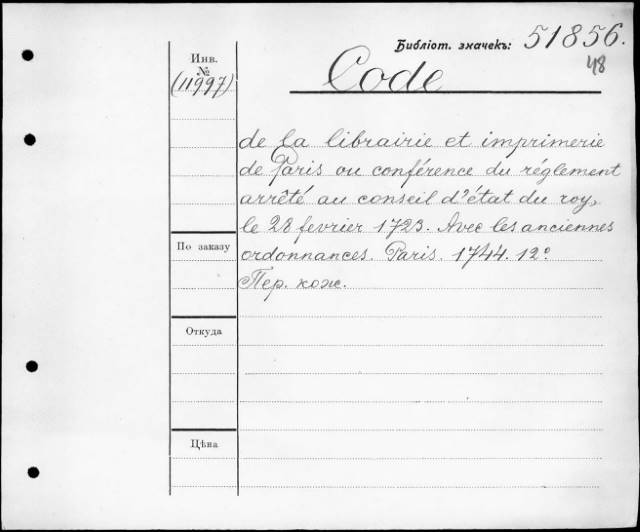 Библіот. значекъ: 51856.
48
Инв.
№
(11997)
Code
de la librairie et imprimerie
de Paris ou conférence du réglement
arrêté au conseil d'état du roy,
le 28 fevrier 1723. Avec les anciennes
ordonnances. Paris. 1744. 12º
Пер. кож.
По заказу
Откуда
Цѣна